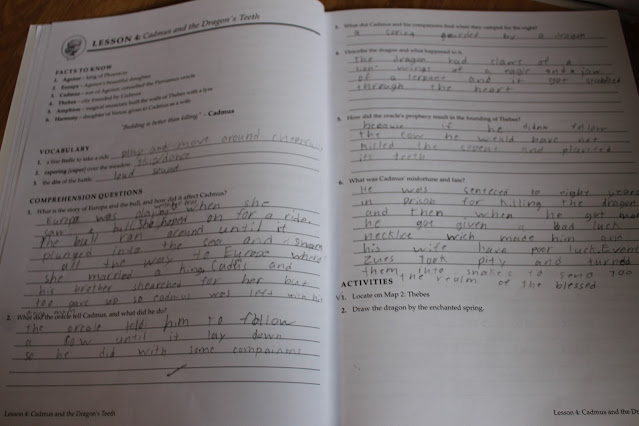 LESSON 4: Cadmus and the Dragon's Teeth
FACTS TO KNOW
1. Agenor – king of Phoenicia
2. Europa – Agenor's beautiful daughter
3. Cadmus – son of Agenor; consulted the Parnassus oracle
4. Thebes – city founded by Cadmus
5. Amphion – magical musician; built the walls of Thebes with a lyre
6. Harmony – daughter of Venus; given to Cadmus as a wife
"Building is better than killing." – Cadmus
VOCABULARY
1. a fine frolic to take a ride play and move around cheerfu
2. capering (caper) over the meadow skip/dance
3. the din of the battle loud sound
COMPREHENSION QUESTIONS
1. What is the story of Europa and the bull, and how did it affect Cadmus?
Europa was playing when she
saw a bull, she hoped on for a ride.
The bull ran around until it
plunged into the sea and swam
all the way to Europe where
she married a king,
his brother shearched for her but
too gave up so cadmus was left with his
2. What did the oracle tell Cadmus, and what did he do?
the oracle told him to follow
a cow until it lay down
so he did with some companions
Lesson 4: Cadmus and the Dragon's Teeth
3. What did Cadmus and his companions find when they camped for the night?
a spring gaurded by a dragon
4. Describe the dragon and what happened to it.
The dragon had claws of a
lion wings of a eagle and a jaw
of a serpant and it got stabbed
through the heart
5. How did the oracle's prophecy result in the founding of Thebes?
because if he didnt follow
the cow he would have not
killed the serpent and planted
its teeth
6. What was Cadmus' misfortune and fate?
He was senteced to eight years
in prison for killing the dragon
and then when he got ma
he got given a bad luck
necklece wich made him and
his wife have poor luck. Event
Zues took pity and turned
them into snakes to send too
the realm of the blessed
ACTIVITIES
1. Locate on Map 2: Thebes
2. Draw the dragon by the enchanted spring.
Lesson 4: Cadmus and the Dr